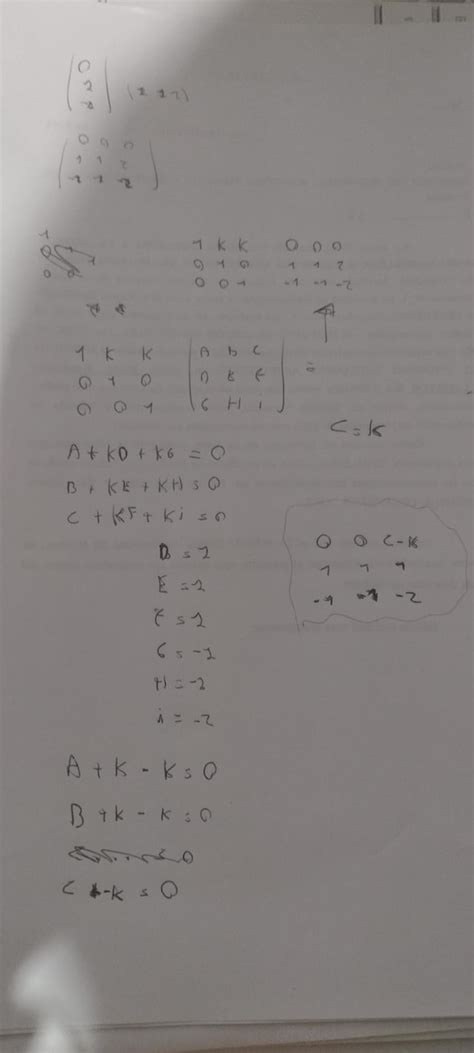 0
1
-1 (1 1 2)
0 0 0
1 1 2
-1 -1 -2
1 K K 0 0 0
0 1 0 1 1 2
0 0 1 -1 -1 -2
1 K K A B C =
0 1 0 D E F
0 0 1 G H i
C = K
A + KD + KG = 0
B + KE + KH = 0
C + KF + Ki = 0
D = 1
E = 1
F = 1
G = -1
H = -1
i = -2
0 0 C-K
1 1 1
-1 -1 -2
A + K - K = 0
B + K - K = 0
= 0
C - K = 0